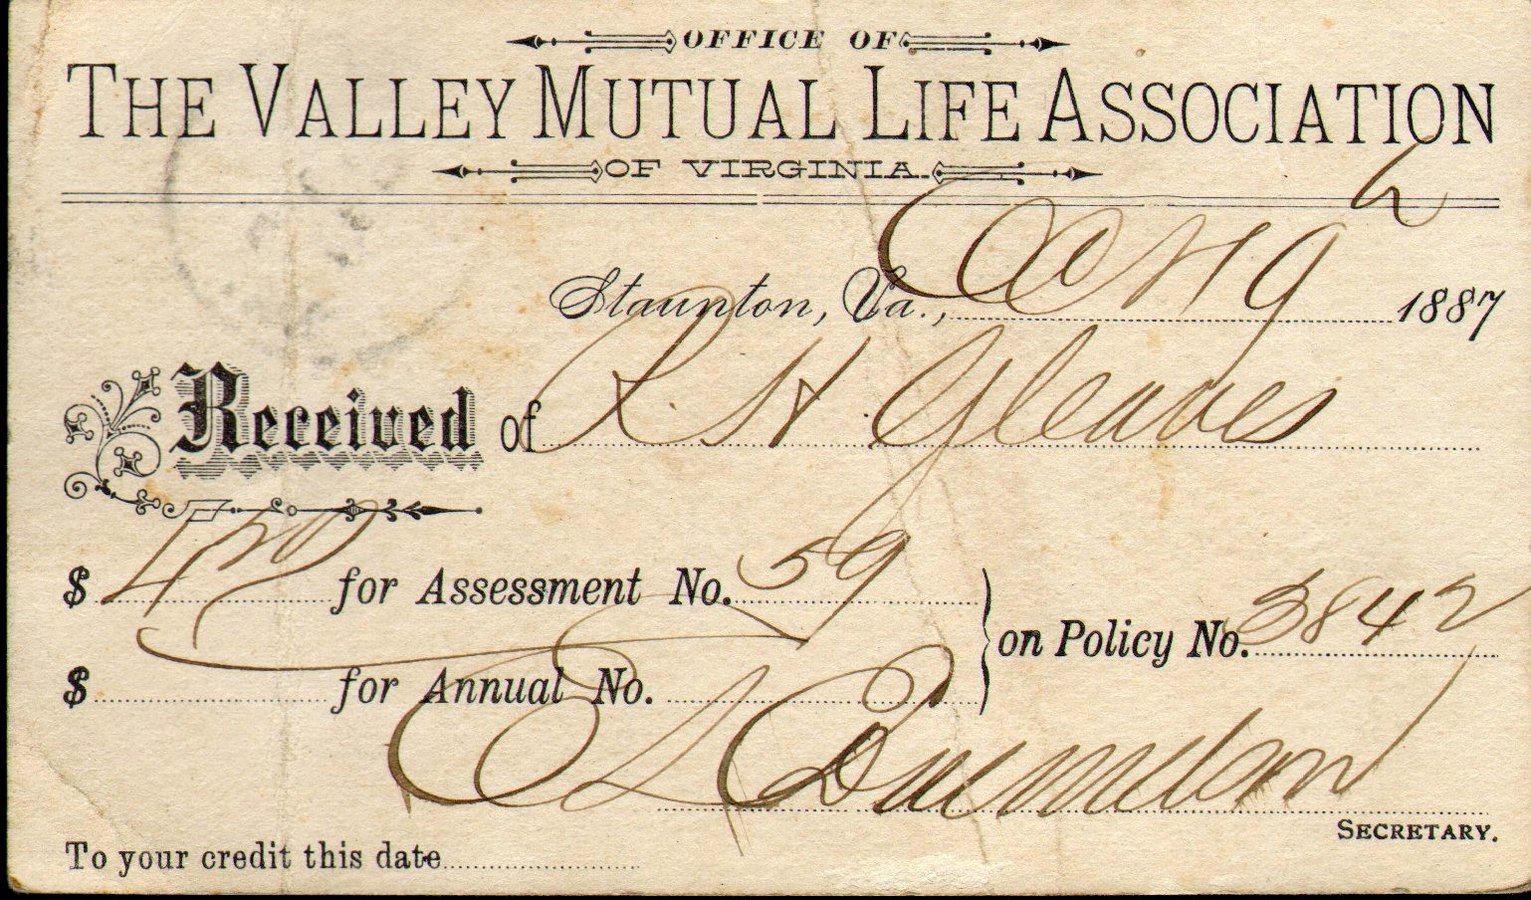 OFFICE OF
THE VALLEY MUTUAL LIFE ASSOCIATION
OF VIRGINIA.
Staunton, Va., 1887
Received of R. H. Gleaves
$ for Assessment No. 59
on Policy No. 3842
$ for Annual No.
SECRETARY.
To your credit this date